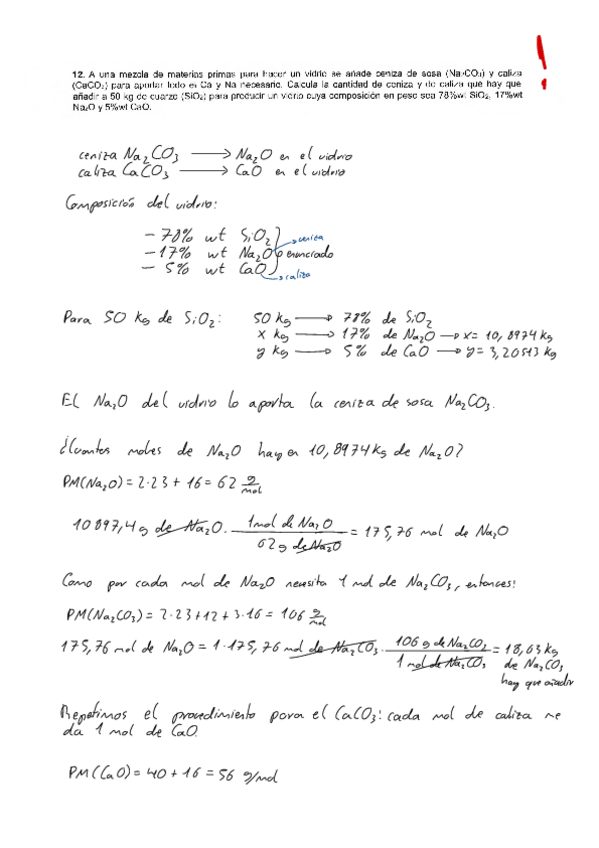 12. A una mezcla de materias primas para hacer un vidrio se añade ceniza de sosa (Na₂CO₃) y caliza
(CaCO₃) para aportar todo el Ca y Na necesario. Calcula la cantidad de ceniza y de caliza que hay que
añadir a 50 kg de cuarzo (SiO₂) para producir un vidrio cuya composición en peso sea 78%wt SiO₂, 17%wt
Na₂O y 5%wt CaO.
ceniza Na₂CO₃ → Na₂O en el vidrio
caliza CaCO₃ → CaO en el vidrio
Composición del vidrio:
- 78% wt SiO₂
- 17% wt Na₂O → ceniza enunciado
- 5% wt CaO → caliza
Para 50 kg de SiO₂: 50 kg → 78% de SiO₂
x kg → 17% de Na₂O → x = 10,8974 kg
y kg → 5% de CaO → y = 3,20513 kg
El Na₂O del vidrio lo aporta la ceniza de sosa Na₂CO₃.
¿Cuantos moles de Na₂O hay en 10,8974 kg de Na₂O?
PM(Na₂O) = 2·23 + 16 = 62 g/mol
10897,4 g de Na₂O · 1 mol de Na₂O / 62 g de Na₂O = 175,76 mol de Na₂O
Como por cada mol de Na₂O necesita 1 mol de Na₂CO₃, entonces:
PM(Na₂CO₃) = 2·23 + 12 + 3·16 = 106 g/mol
175,76 mol de Na₂O = 1·175,76 mol de Na₂CO₃ · 106 g de Na₂CO₃ / 1 mol de Na₂CO₃ = 18,63 kg
de Na₂CO₃
hay que añadir
Repetimos el procedimiento para el CaCO₃: cada mol de caliza me
da 1 mol de CaO.
PM(CaO) = 40 + 16 = 56 g/mol